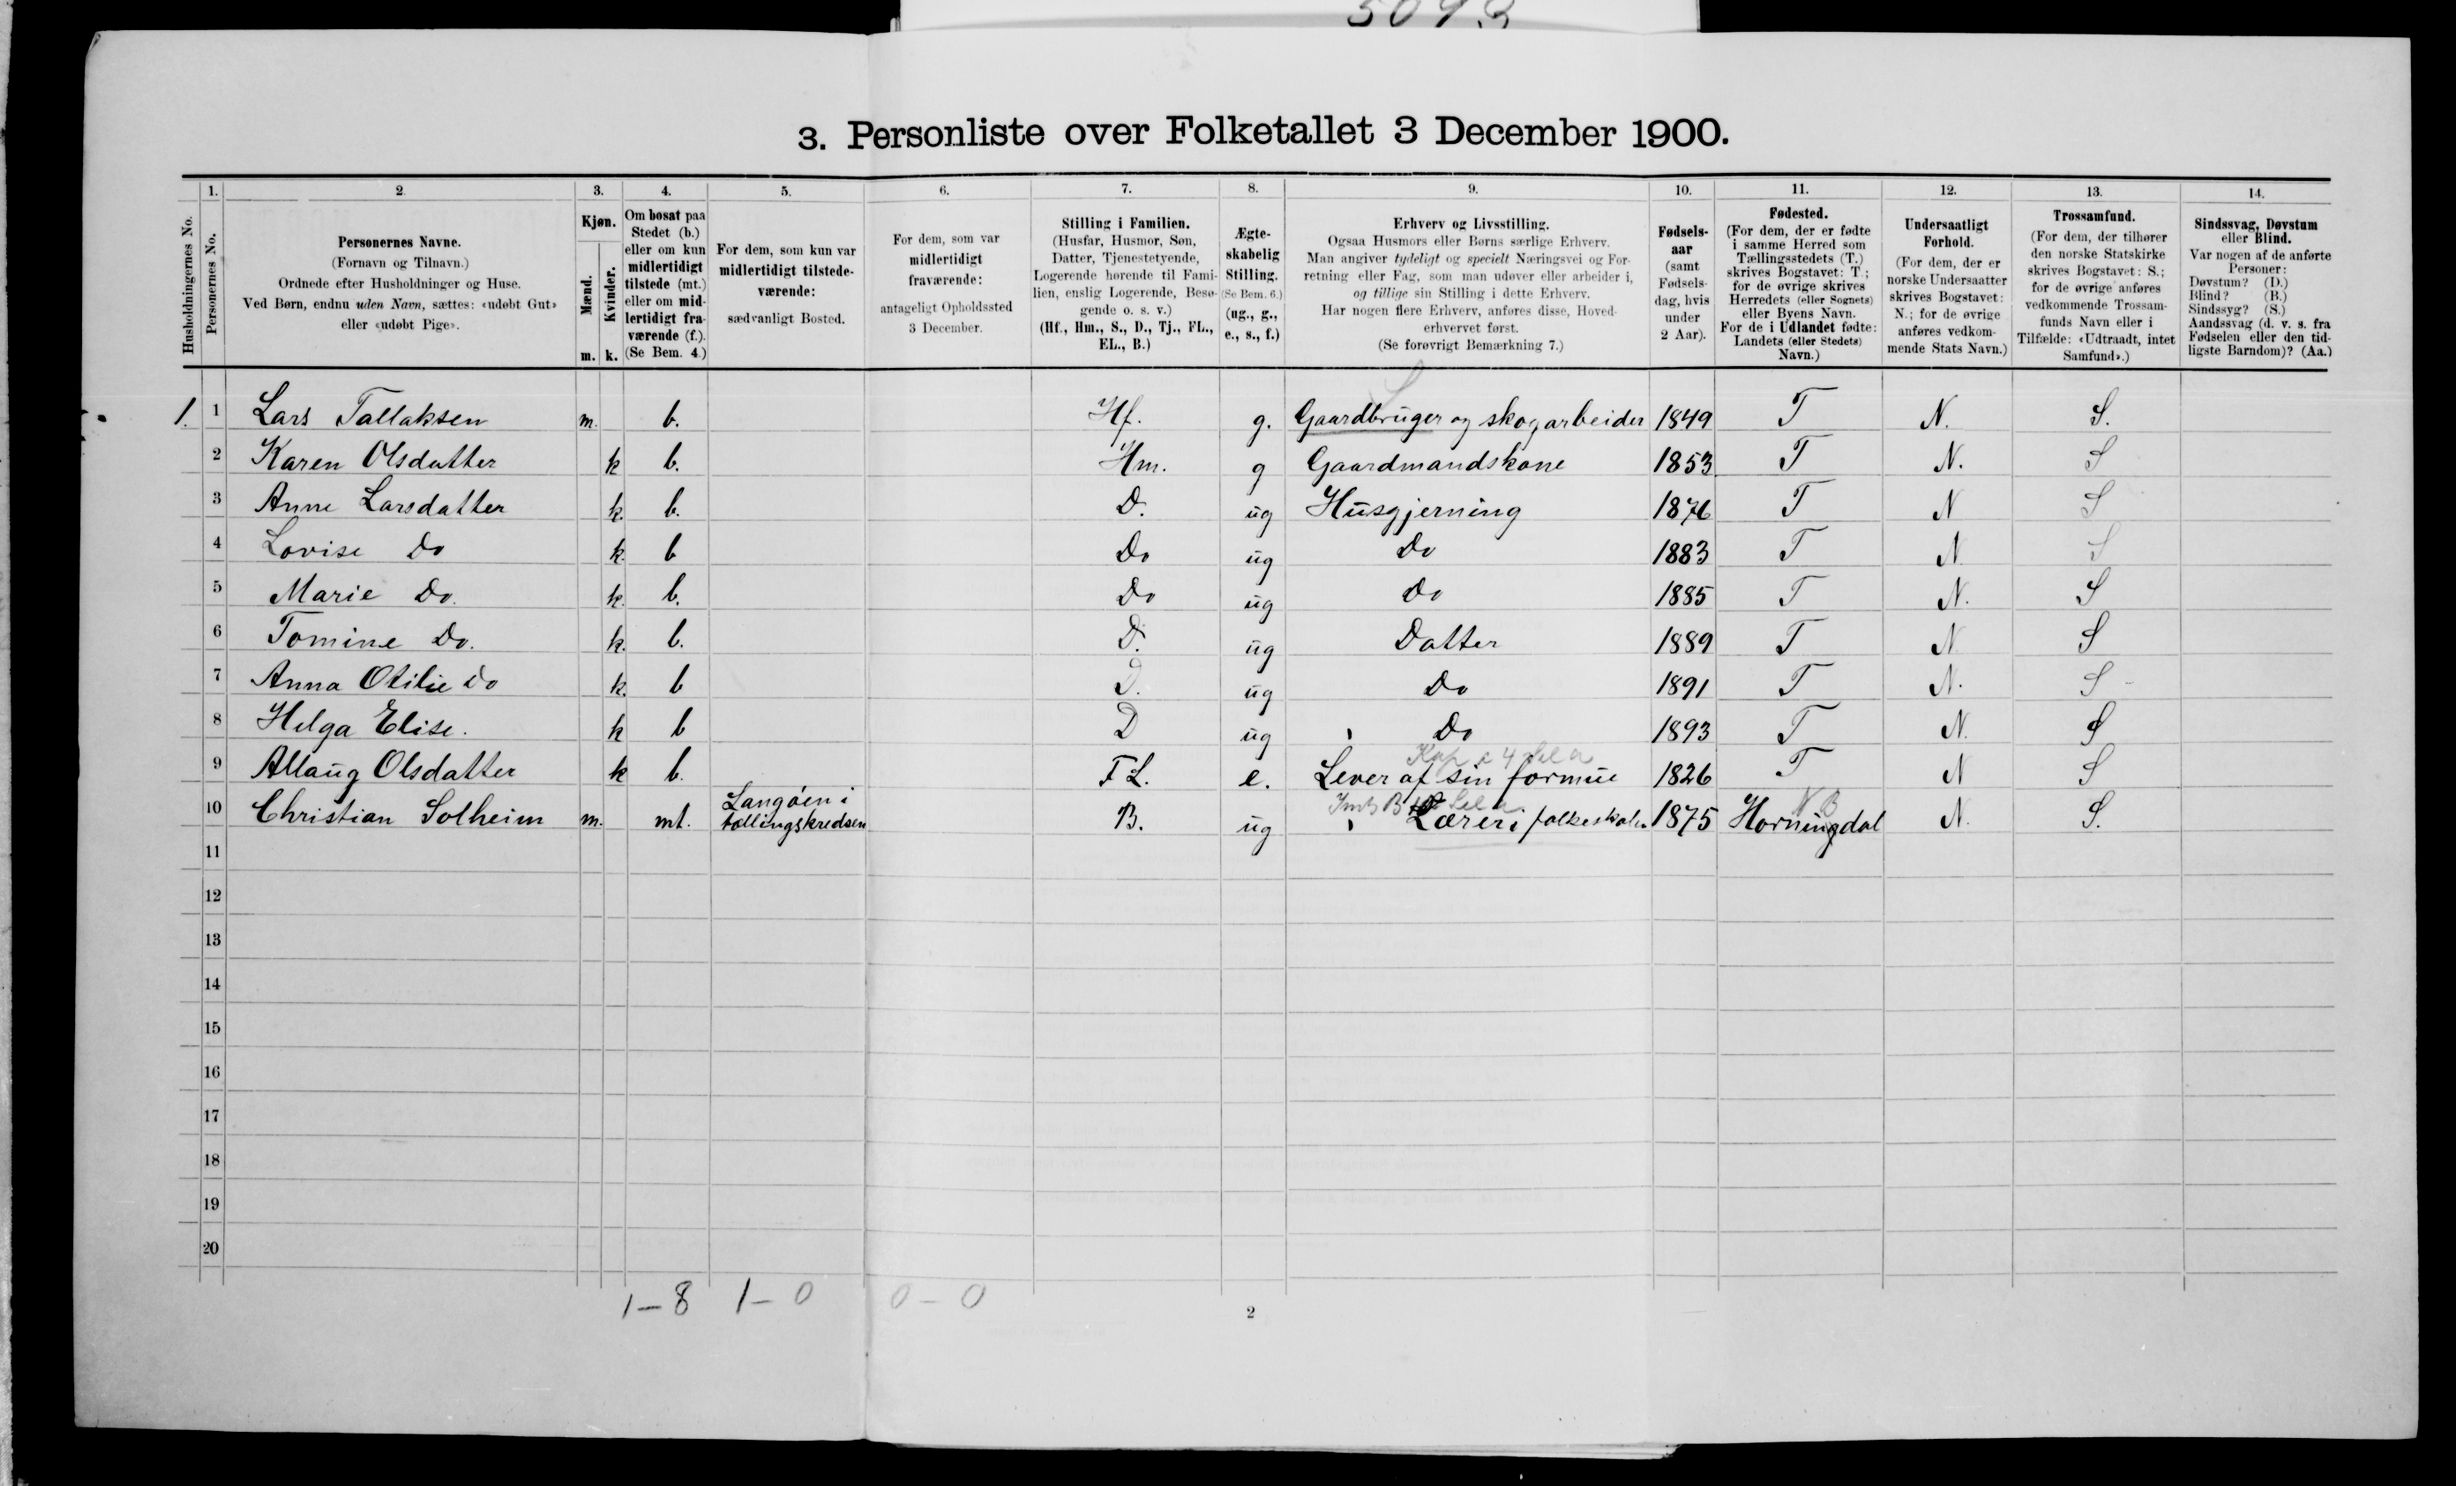 3. Personliste over Folketallet 3 December 1900.
1. 2 3. 4. 5. 6. 7. 8. 9. 10. 11. 12. 13. 14.
Husholdningernes No.
Personernes No.
Personernes Navne.
(Fornavn og Tilnavn.)
Ordnede efter Husholdninger og Huse.
Ved Børn, endnu uden Navn, sættes: «udøbt Gut»
eller «udøbt Pige».
Kjøn.
Mænd.
Kvinder.
m. k.
Om bosat paa
Stedet (b.)
eller om kun
midlertidigt
tilstede (mt.)
eller om mid-
lertidigt fra-
værende (f.).
(Se Bem. 4.)
For dem, som kun var
midlertidigt tilstede-
værende:
sædvanligt Bosted.
For dem, som var
midlertidigt
fraværende:
antageligt Opholdssted
3 December.
Stilling i Familien.
(Husfar, Husmor, Søn,
Datter, Tjenestetyende,
Logerende hørende til Fami-
lien, enslig Logerende, Besø-
gende o. s. v.)
(Hf., Hm., S., D., Tj., FL.,
EL., B.)
Ægte-
skabelig
Stilling.
(Se Bem. 6.)
(ug., g.,
e., s., f.)
Erhverv og Livsstilling.
Ogsaa Husmors eller Børns særlige Erhverv.
Man angiver tydeligt og specielt Næringsvei og For-
retning eller Fag, som man udøver eller arbeider i,
og tillige sin Stilling i dette Erhverv.
Har nogen flere Erhverv, anføres disse, Hoved-
erhvervet først.
(Se forøvrigt Bemærkning 7.)
Fødsels-
aar
(samt
Fødsels-
dag, hvis
under
2 Aar).
Fødested.
(For dem, der er fødte
i samme Herred som
Tællingsstedets (T.)
skrives Bogstavet: T.;
for de øvrige skrives
Herredets (eller Sognets)
eller Byens Navn.
For de i Udlandet fødte:
Landets (eller Stedets)
Navn.)
Undersaatligt
Forhold.
(For dem, der er
norske Undersaatter
skrives Bogstavet:
N.; for de øvrige
anføres vedkom-
mende Stats Navn.)
Trossamfund.
(For dem, der tilhører
den norske Statskirke
skrives Bogstavet: S.;
for de øvrige anføres
vedkommende Trossam-
funds Navn eller i
Tilfælde: «Udtraadt, intet
Samfund».)
Sindssvag, Døvstum
eller Blind.
Var nogen af de anførte
Personer:
Døvstum? (D.)
Blind? (B.)
Sindssyg? (S.)
Aandssvag (d. v. s. fra
Fødselen eller den tid-
ligste Barndom)? (Aa.)
1. 1 Lars Tallaksen m. b. Hf. g. Gaardbruger og skogarbeider 1849 T N. S.
2 Karen Olsdatter k b. Hm. g Gaardmandskone 1853 T N. S
3 Anne Larsdatter k. b. D. ug Husgjerning 1876 T N S
4 Lovise Do k. b Do ug Do 1883 T N S
5 Marie Do. k. b. Do ug Do 1885 T N. S
6 Tomine Do. k. b. D. ug Datter 1889 T N S
7 Anna Otilie Do k. b D. ug Do 1891 T N. S
8 Helga Elise. k b D ug Do 1893 T N. S
9 Allaug Olsdatter k b. FL. e. Lever af sin formue 1826 T N S
10 Christian Solheim m. mt. Langøen i
tællingskredsen B. ug Lærer i folkeskolen 1875 Horningdal N. S.
11
12
13
14
15
16
17
18
19
20
1 – 8 1 – 0 0 – 0
2